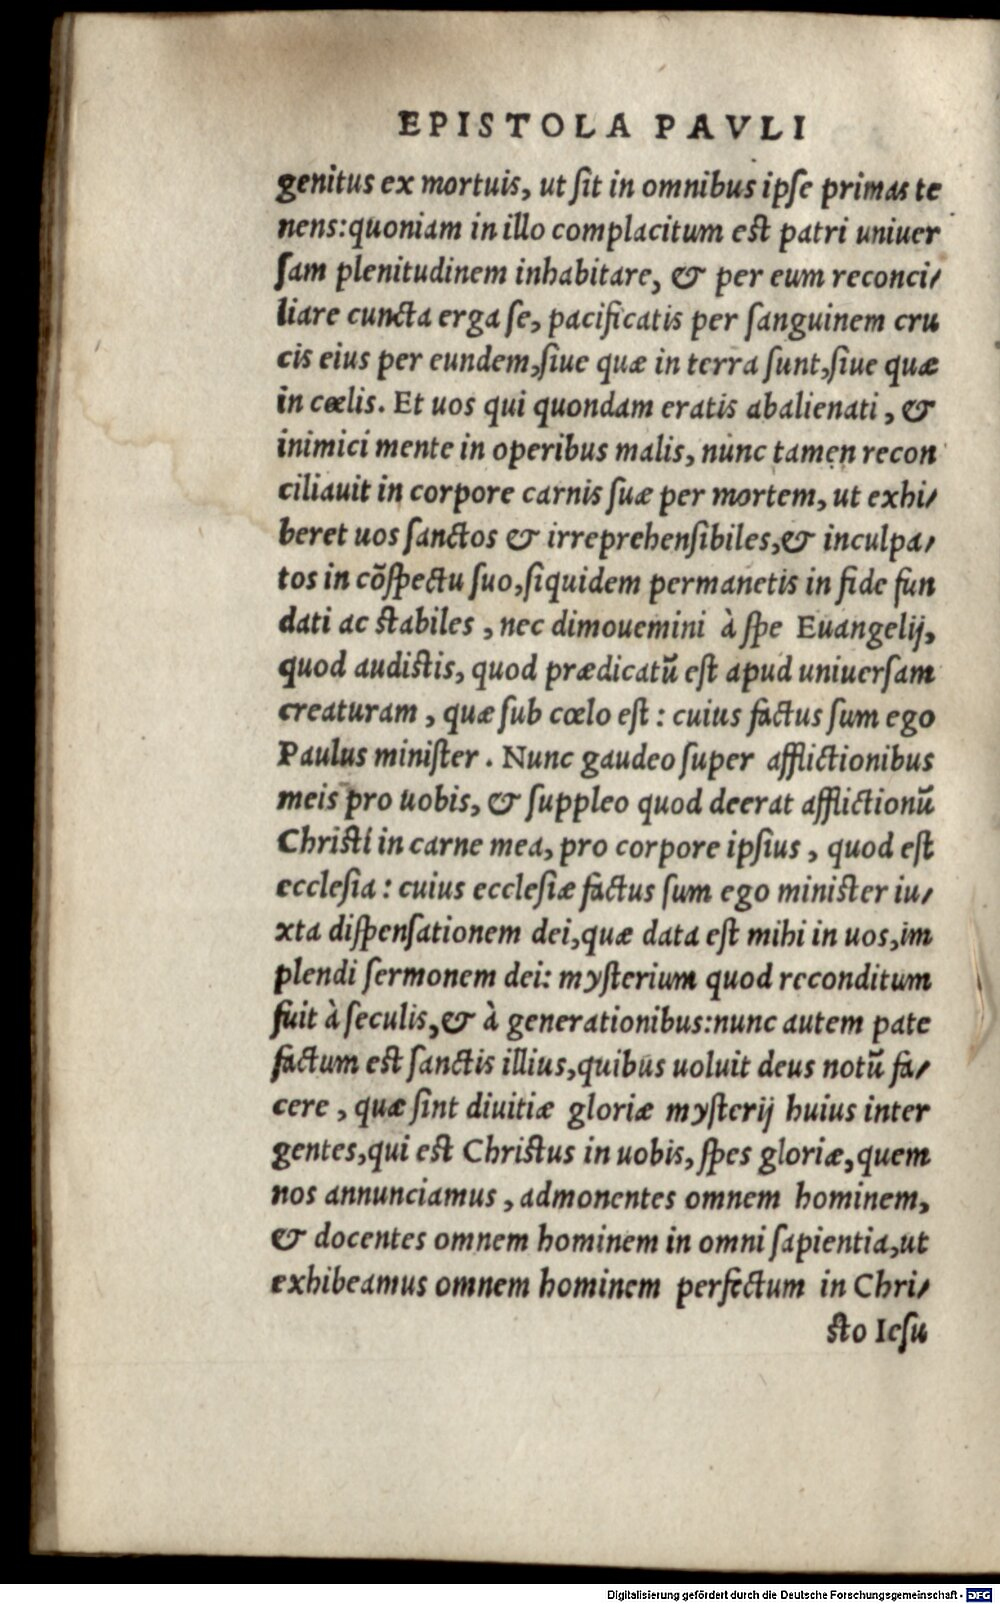 EPISTOLA PAVLI
genitus ex mortuis, ut ſit in omnibus ipſe primas te
nens:quoniam in illo complacitum eſt patri uniuer
ſam plenitudinem inhabitare, & per eum reconci/
liare cuncta erga ſe, pacificatis per ſanguinem cru
cis eius per eundem,ſiue quæ in terra ſunt,ſiue quæ
in cœlis. Et uos qui quondam eratis abalienati, &
inimici mente in operibus malis, nunc tamen recon
ciliauit in corpore carnis ſuæ per mortem, ut exhi/
beret uos ſanctos & irreprehenſibiles,& inculpa/
tos in cõſpectu ſuo,ſiquidem permanetis in fide fun
dati ac ſtabiles, nec dimouemini à ſpe Euangelij,
quod audiſtis, quod prædicatũ eſt apud uniuerſam
creaturam, quæ ſub cœlo eſt: cuius factus ſum ego
Paulus miniſter. Nunc gaudeo ſuper afflictionibus
meis pro uobis, & ſuppleo quod deerat afflictionũ
Chriſti in carne mea, pro corpore ipſius, quod eſt
eccleſia: cuius eccleſiæ factus ſum ego miniſter iu/
xta diſpenſationem dei,quæ data eſt mihi in uos,im
plendi ſermonem dei: myſterium quod reconditum
fuit à ſeculis,& à generationibus:nunc autem pate
factum eſt ſanctis illius,quibus uoluit deus notũ fa/
cere, quæ ſint diuitiæ gloriæ myſterij huius inter
gentes,qui eſt Chriſtus in uobis, ſpes gloriæ,quem
nos annunciamus, admonentes omnem hominem,
& docentes omnem hominem in omni ſapientia,ut
exhibeamus omnem hominem perfectum in Chri/
ſto Ieſu
Digitalisierung gefördert durch die Deutsche Forschungsgemeinschaft - DFG